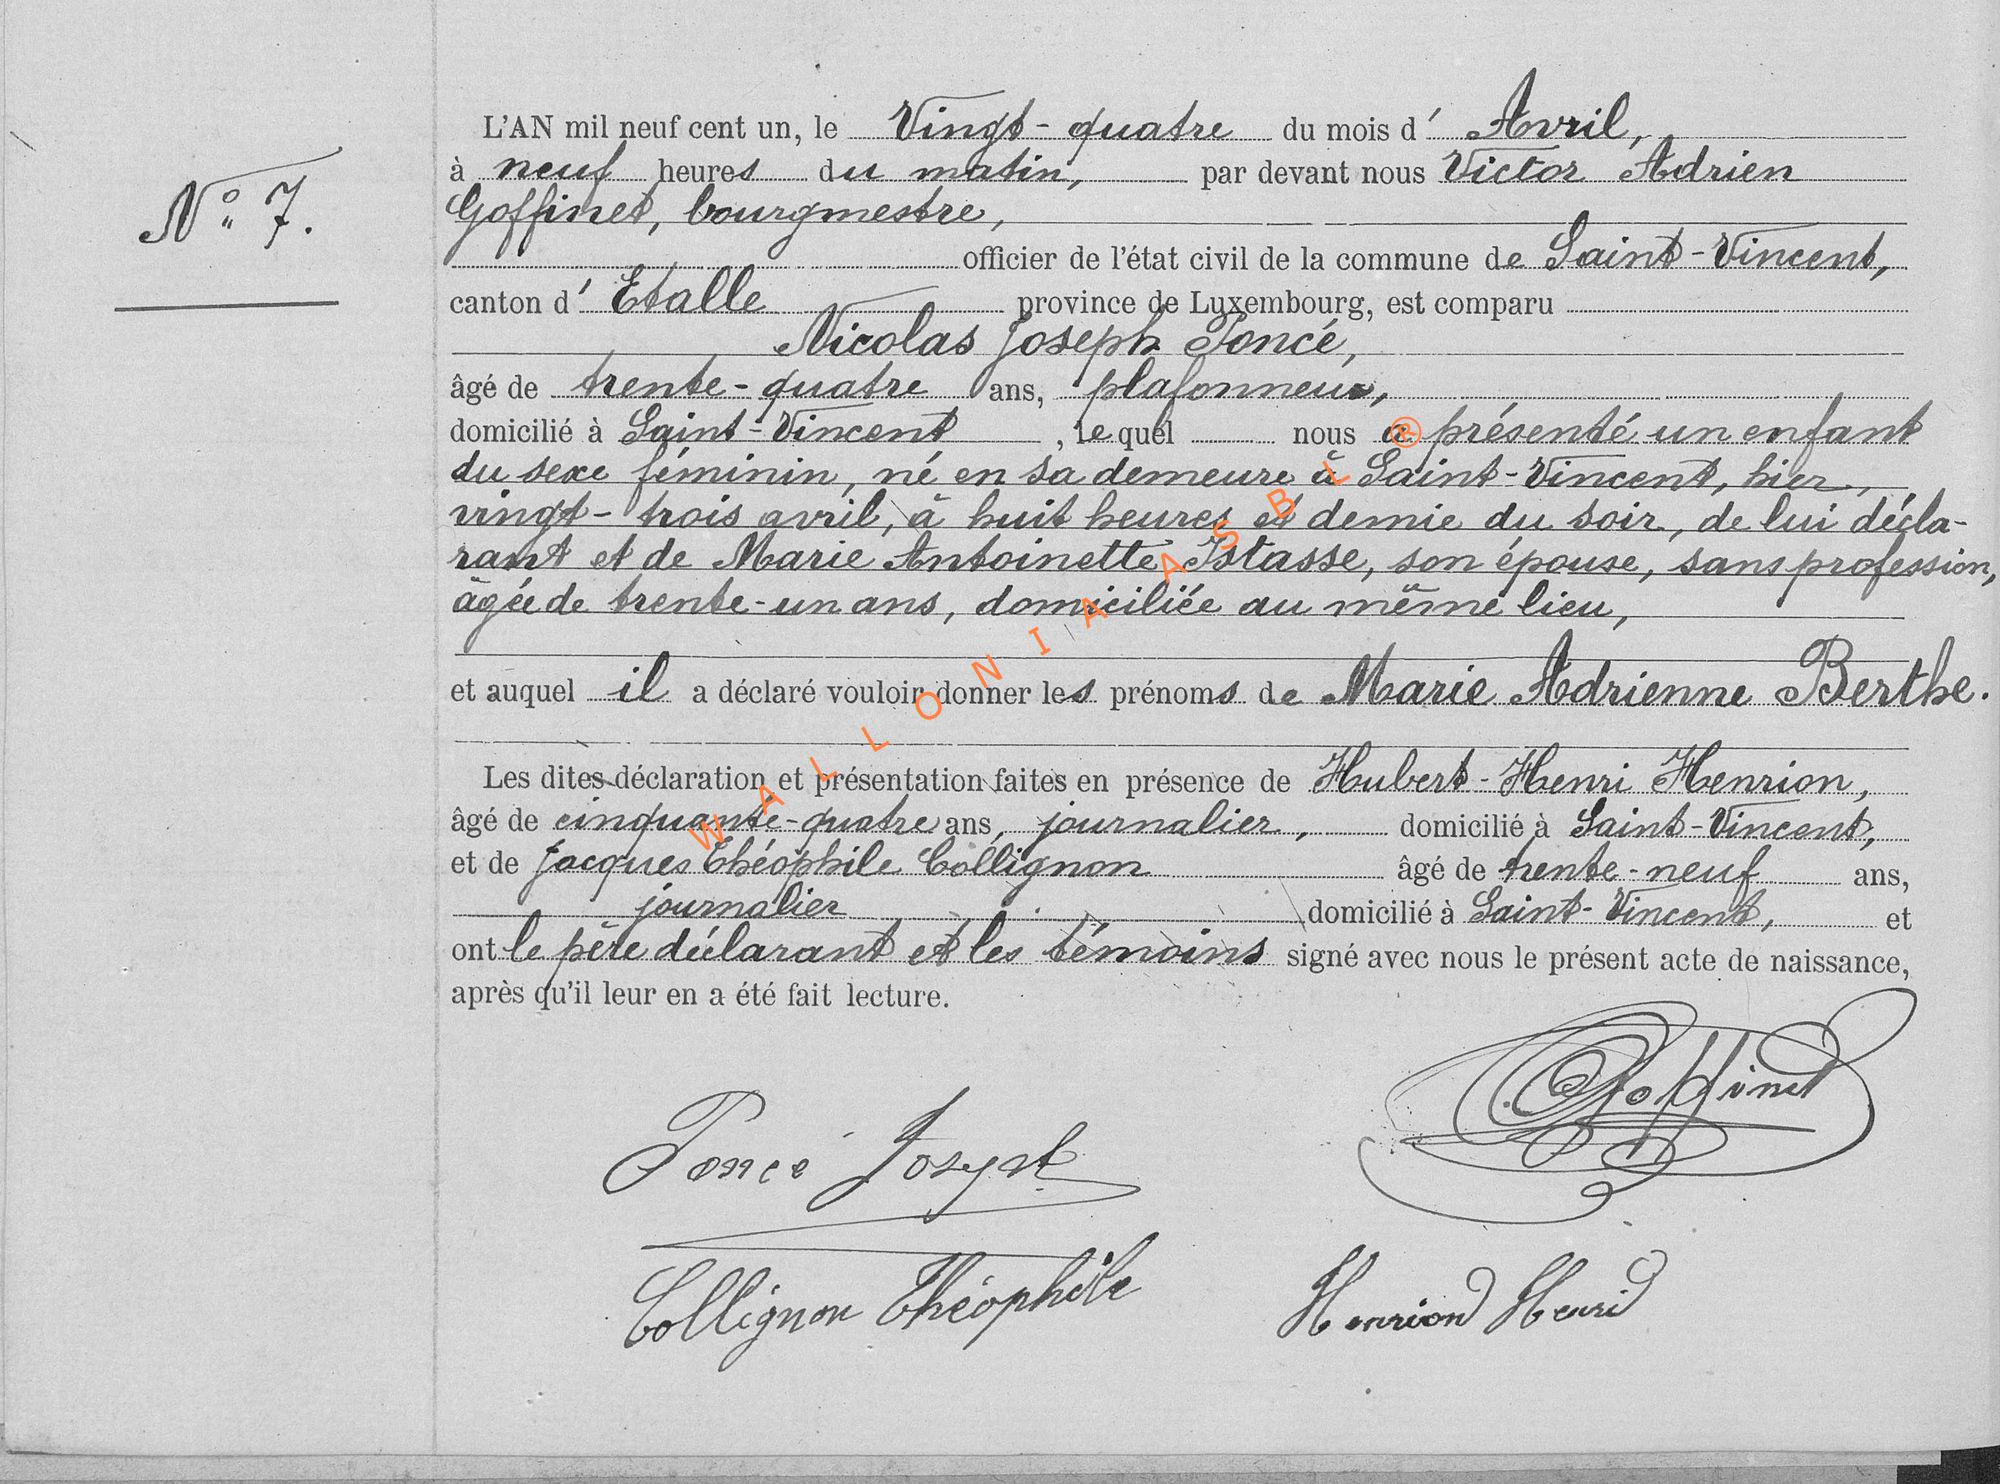 N° 7.
L'AN mil neuf cent un, le Vingt-quatre du mois d' Avril,
à neuf heures du matin, par devant nous Victor Adrien
Goffinet, bourgmestre,
officier de l'état civil de la commune de Saint-Vincent,
canton d' Etalle province de Luxembourg, est comparu
Nicolas Joseph Poncé,
âgé de trente-quatre ans, plafonneur,
domicilié à Saint-Vincent, lequel nous a présenté un enfant
du sexe féminin, né en sa demeure à Saint-Vincent, hier,
vingt-trois avril, à huit heures et demie du soir, de lui décla-
rant et de Marie Antoinette Istasse, son épouse, sans profession,
âgée de trente-un ans, domiciliée au même lieu,
et auquel il a déclaré vouloir donner les prénoms de Marie Adrienne Berthe.
Les dites déclaration et présentation faites en présence de Hubert-Henri Henrion,
âgé de cinquante-quatre ans, journalier, domicilié à Saint-Vincent,
et de Jacques Théophile Collignon âgé de trente-neuf ans,
journalier domicilié à Saint-Vincent, et
ont le père déclarant et les témoins signé avec nous le présent acte de naissance,
après qu'il leur en a été fait lecture.
Goffinet
Poncé Joseph
Collignon Théophile
Henrion Henri
WALLONIA ASBL ®